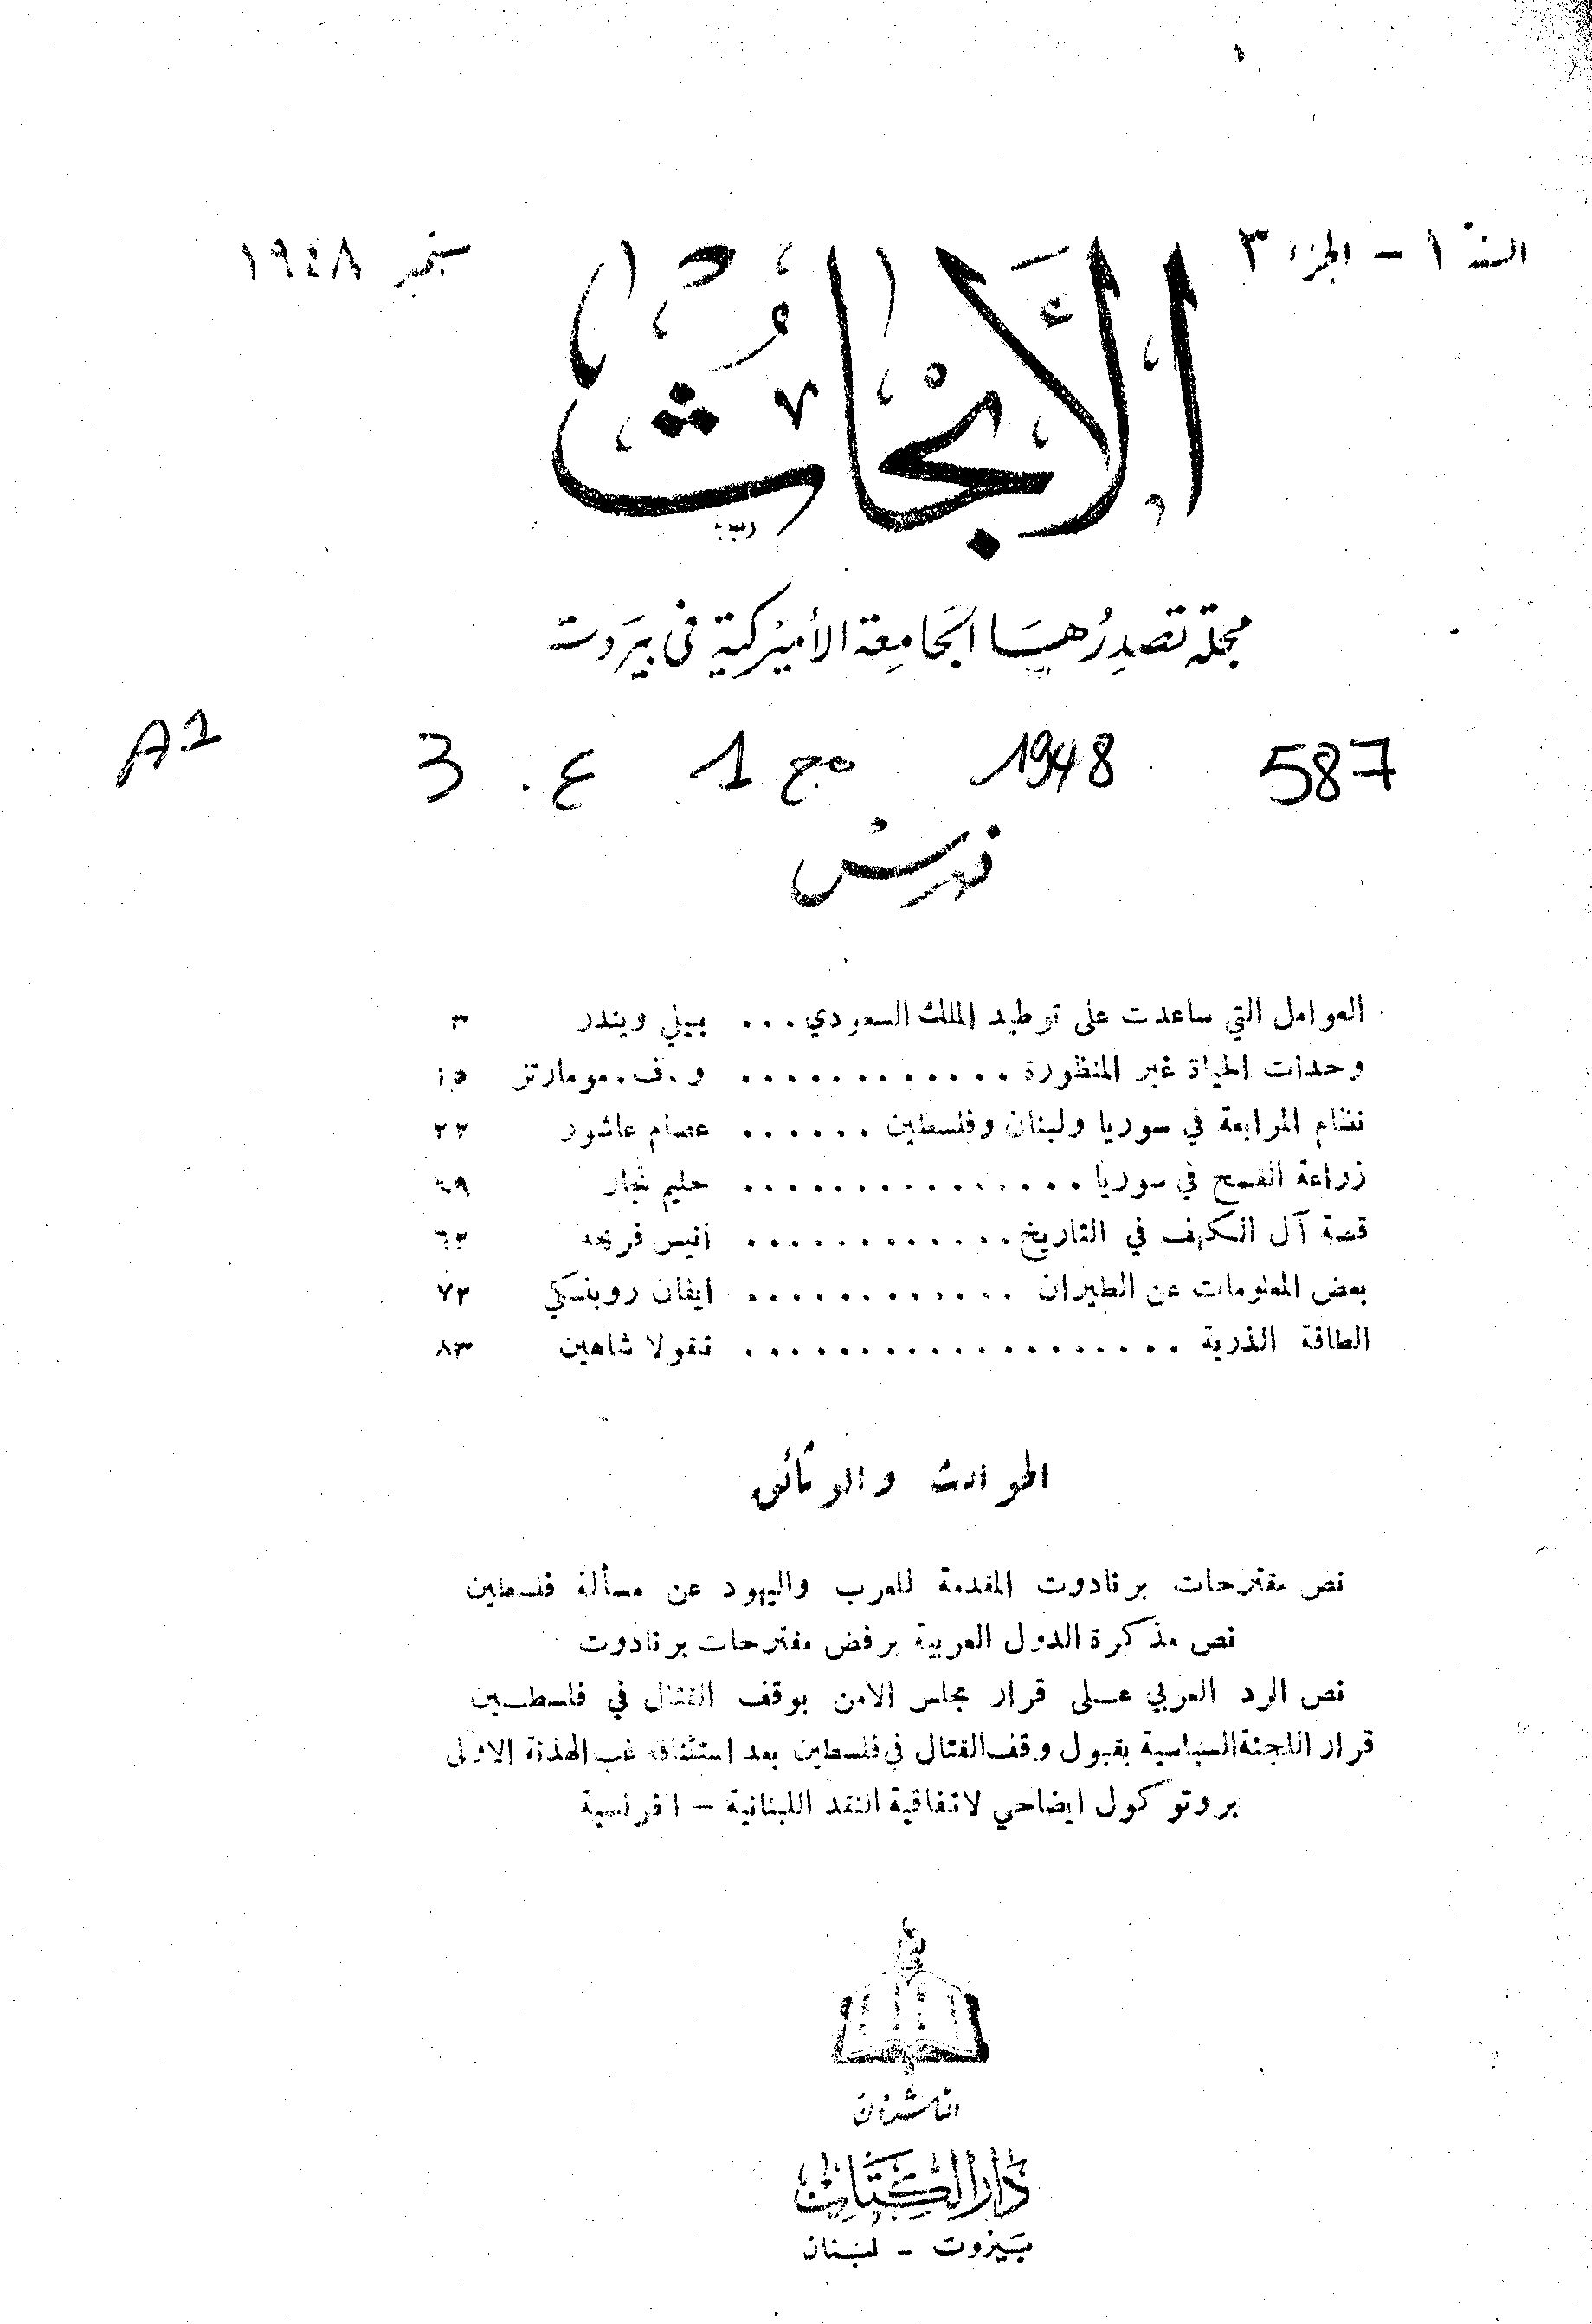 السنة ١ - الجزء ٣
سبتمبر ١٩٤٨
الأبحاث
مجلة تصدرها الجامعة الأميركية في بيروت
587 1948 مج 1 ع. 3 A1
فهرس
العوامل التي ساعدت على توطيد الملك السعودي... بيلي ويندر ٣
وحدات الحياة غير المنظورة ............ و.ف. مومارتز ١٥
نظام المرابعة في سوريا ولبنان وفلسطين ...... عصام عاشور
زراعة القمح في سوريا ............... حليم نجار
قصة آل الكهف في التاريخ ............ انيس فريحه
بعض المعلومات عن الطيران ............ ايفان روبنسكي
الطاقة الذرية ................... نقولا شاهين ٨٣
الحوادث والوثائق
نص مقترحات برنادوت المقدمة للعرب واليهود عن مسألة فلسطين
نص مذكرة الدول العربية برفض مقترحات برنادوت
نص الرد العربي عـلى قرار مجلس الامن بوقف القتال في فلسطـين
قرار اللجنة السياسية بقبول وقف القتال في فلسطين بعد استئنافه غب الهدنة الاولى
بروتوكول ايضاحي لاتفاقية النقد اللبنانية - الفرنسية
الناشرون
دار الكتاب
بيروت - لبنان